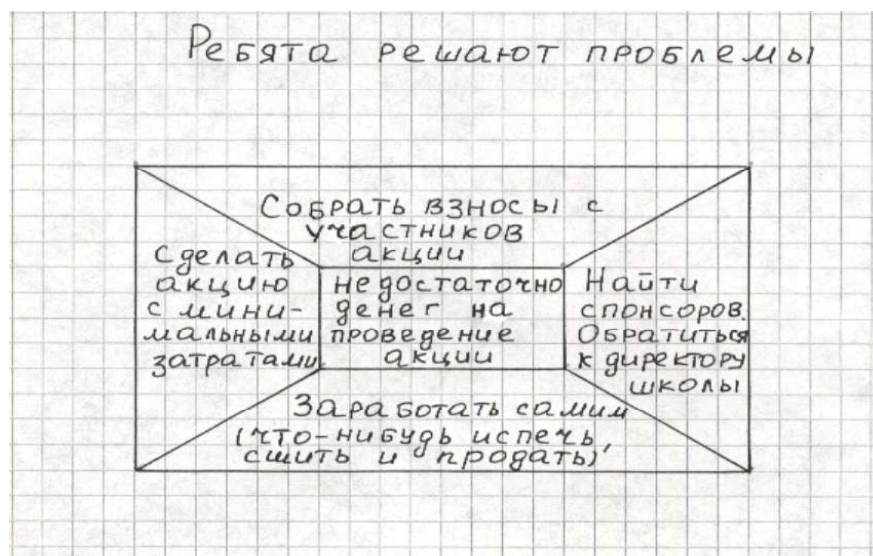 Ребята решают проблемы
Собрать взносы с
участников
акции
Сделать
акцию
с мини-
мальными
затратами
недостаточно
денег на
проведение
акции
Найти
спонсоров.
Обратиться
к директору
школы
Заработать самим
(что-нибудь испечь,
сшить и продать)